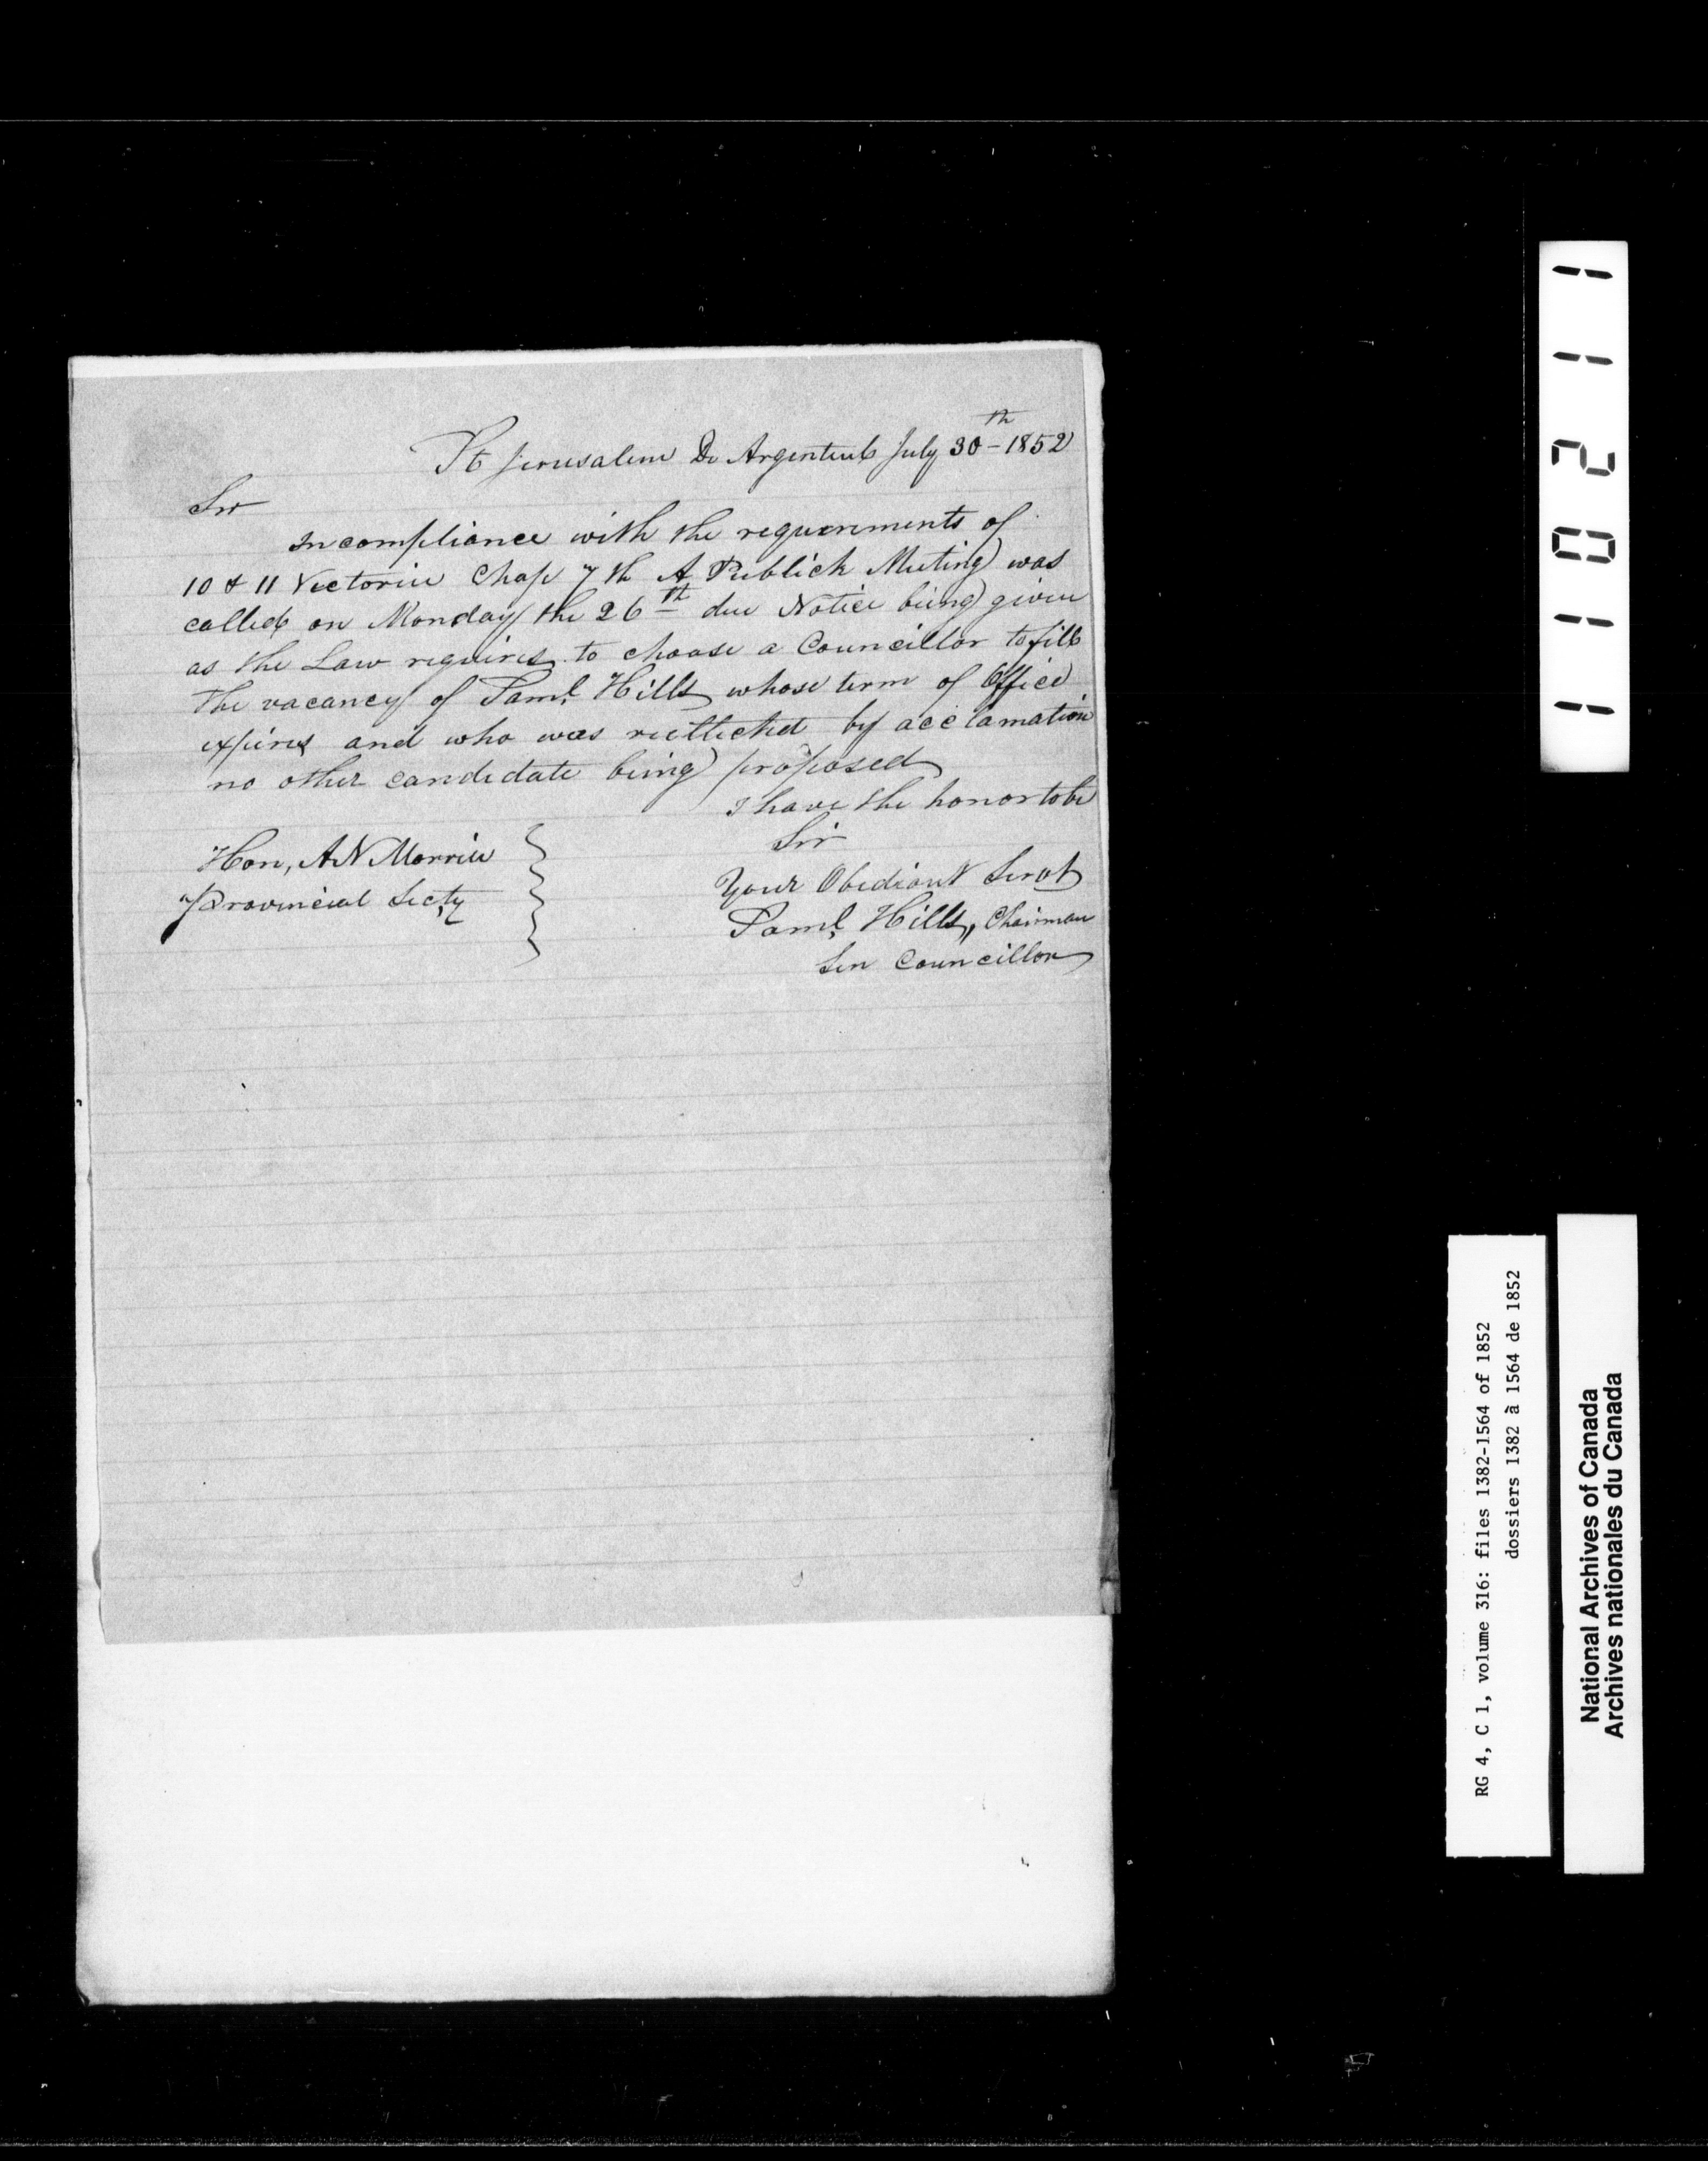 St Jerusalem De Argenteuil July 30th - 1852
Sir
In compliance with the requirements of
10 & 11 Victoria Chap 7th A Publick Meeting was
called on Monday the 26th due Notice being given
as the Law requires to choose a Councillor to fill
the vacancy of Saml Hills whose term of Office
expires and who was reellected by acclamation
no other candidate being proposed
I have the honor to be
Sir
Your Obediant Servt
Saml Hills, Chairman
Sen Councillor
Hon, A N Morrin
Provincial Secty
11021 1
RG 4, C 1, volume 316: files 1382-1564 of 1852
dossiers 1382 à 1564 de 1852
National Archives of Canada
Archives nationales du Canada